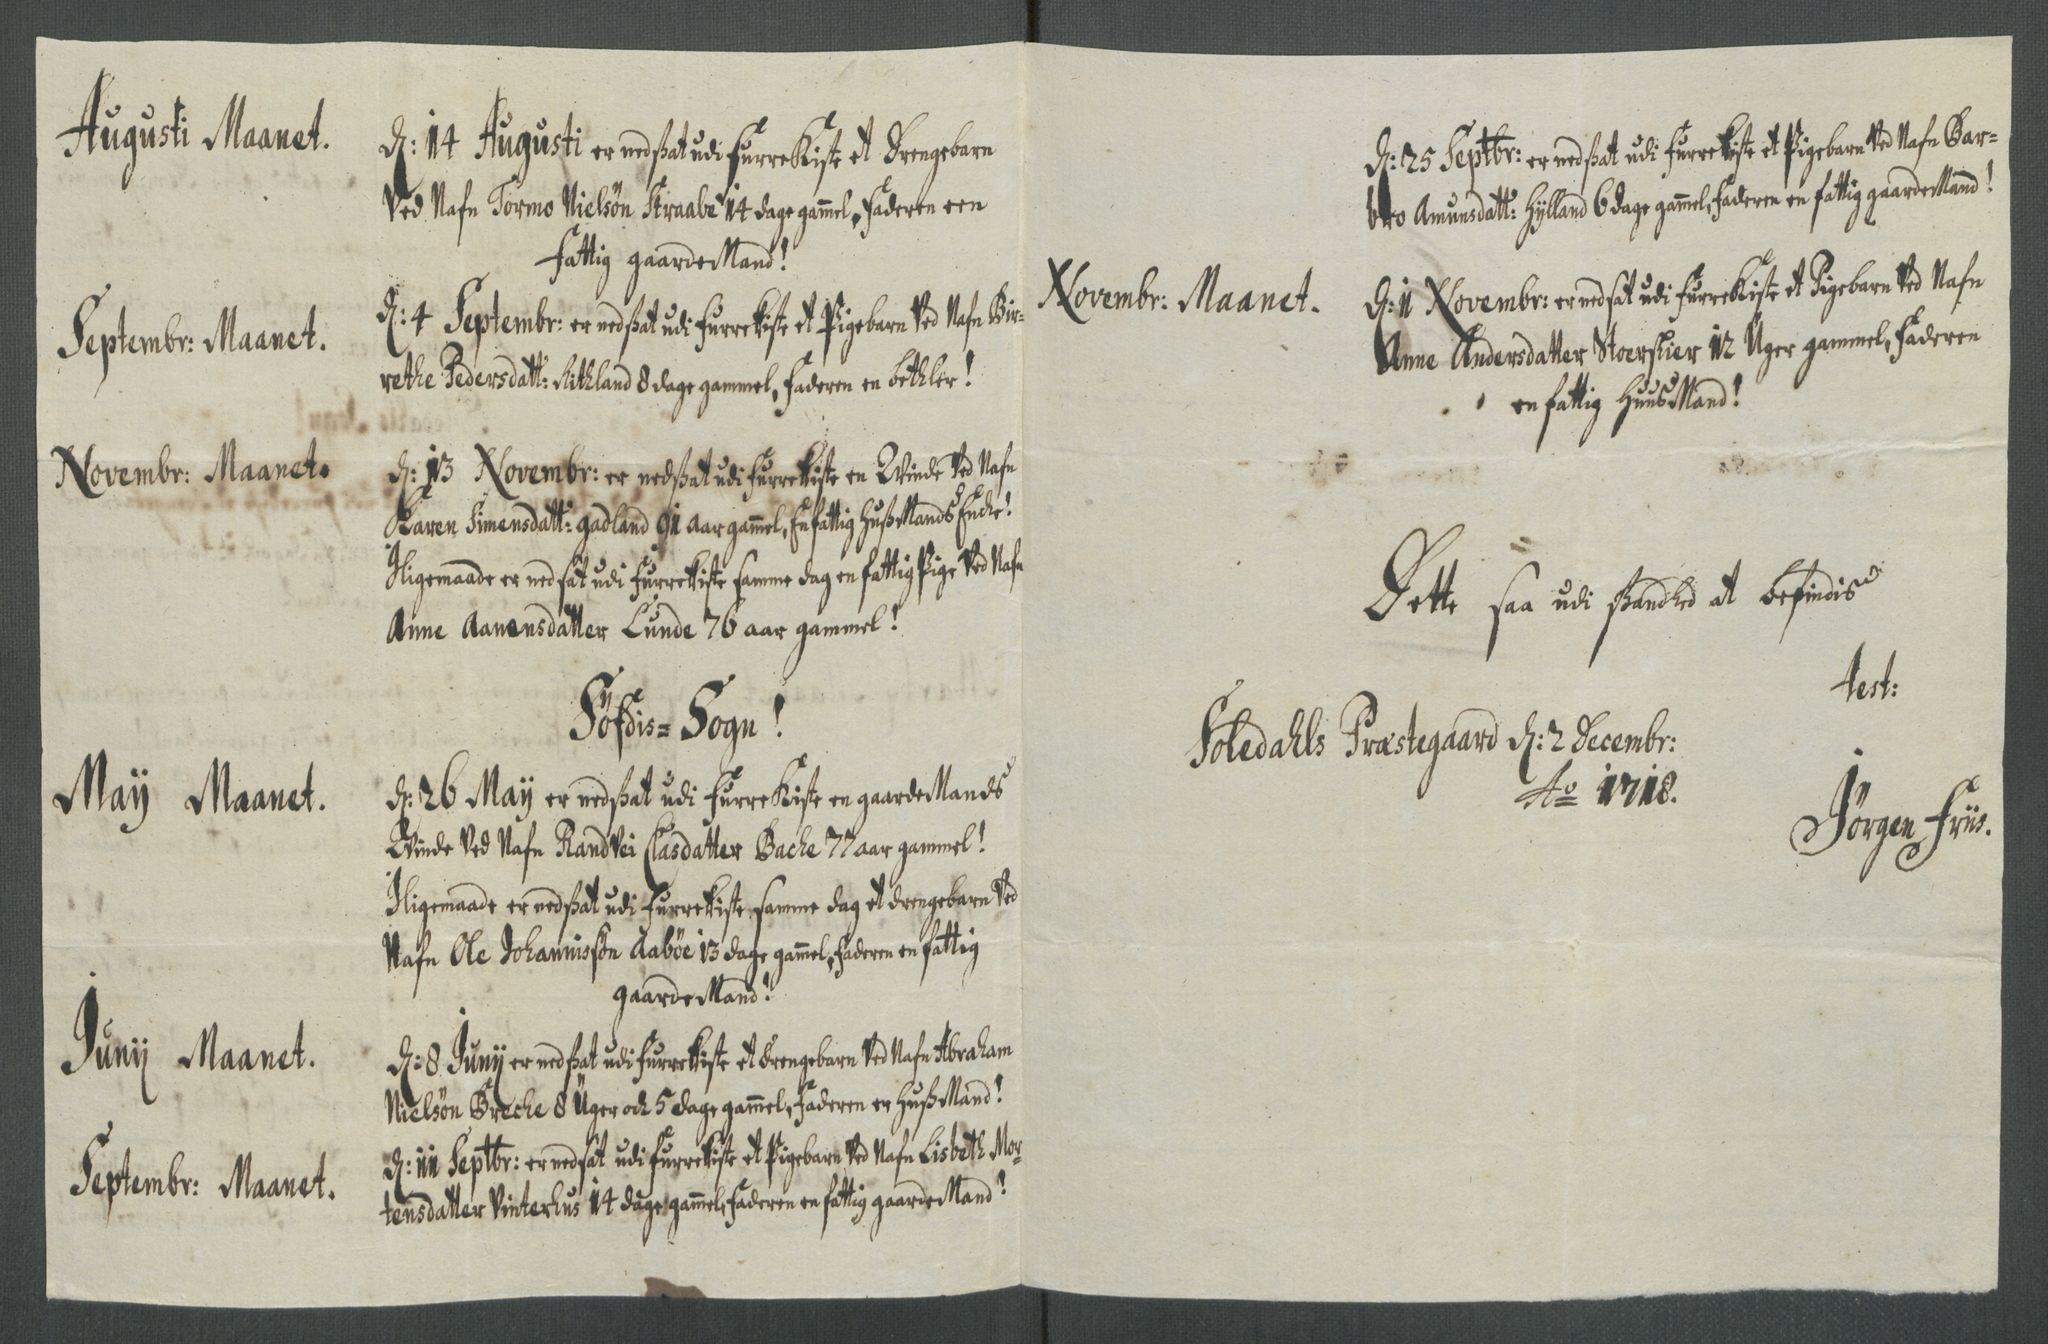 Augusti Maanet.
D: 14 Augusti er nedsat udi FurreKiste et Drengebarn
Ved Nafn Tormo Nielsön Straabe 14 dage gam̄el, Faderen een
Fattig gaardeMand!
Septembr: Maanet.
D: 4 Septembr: er nedsat udi FurreKiste et Pigebarn Ved Nafn Bir-
rethe Pedersdatt: Rithland 8 dage gammel, Faderen en bethler!
Novembr: Maanet.
D: 13 Novembr: er nedsat udi FurreKiste en Qvinde Ved Nafn
Karen Simensdatt: gadland 91 aar gam̄el, En fattig HusMands Encke!
Iligemaade er nedsat udi FurreKiste samme dag en fattig Pige Ved Nafn
Anne Aanensdatter Lunde 76 aar gammel!
Söfdis= Sogn!
Maÿ Maanet.
D: 26 Maÿ er nedsat udi FurreKiste en gaardeMands
Qvinde Ved Nafn Randvei Clasdatter Bache 77 aar gammel!
Iligemaade er nedsat udi FurreKiste samme dag et drengebarn Ved
Nafn Ole Johannissön Aaböe 13 dage gam̄el, Faderen en fattig
gaardeMand!
Junÿ Maanet.
D: 8 Junÿ er nedsat udi FurreKiste et drengebarn Ved Nafn Abraham
Nielsön Breche 8 Uger och 5 dage gam̄el, Faderen er HusMand!
Septembr: Maanet.
D: 11 Septbr: er nedsat udi FurreKiste et Pigebarn Ved Nafn Lisbeth Mor-
tensdatter Vinterhus 14 dage gam̄el, Faderen en fattig gaardeMand!
D: 25 Septbr: er nedsat udi FurreKiste et Pigebarn Ved Nafn Bar-
bro Amunsdatt: Hÿlland 6 dage gam̄el, Faderen en fattig gaardeMand!
Novembr: Maanet.
D: 11 Novembr: er nedsat udi FurreKiste et Pigebarn Ved Nafn
Anne Andersdatter Stoerskier 12 Uger gammel, Faderen
en fattig HuusMand!
Dette saa udi sandhed at befindis
test:
Soledahls Præstegaard D: 2 Decembr:
Ao 1718.
Jörgen Friis.